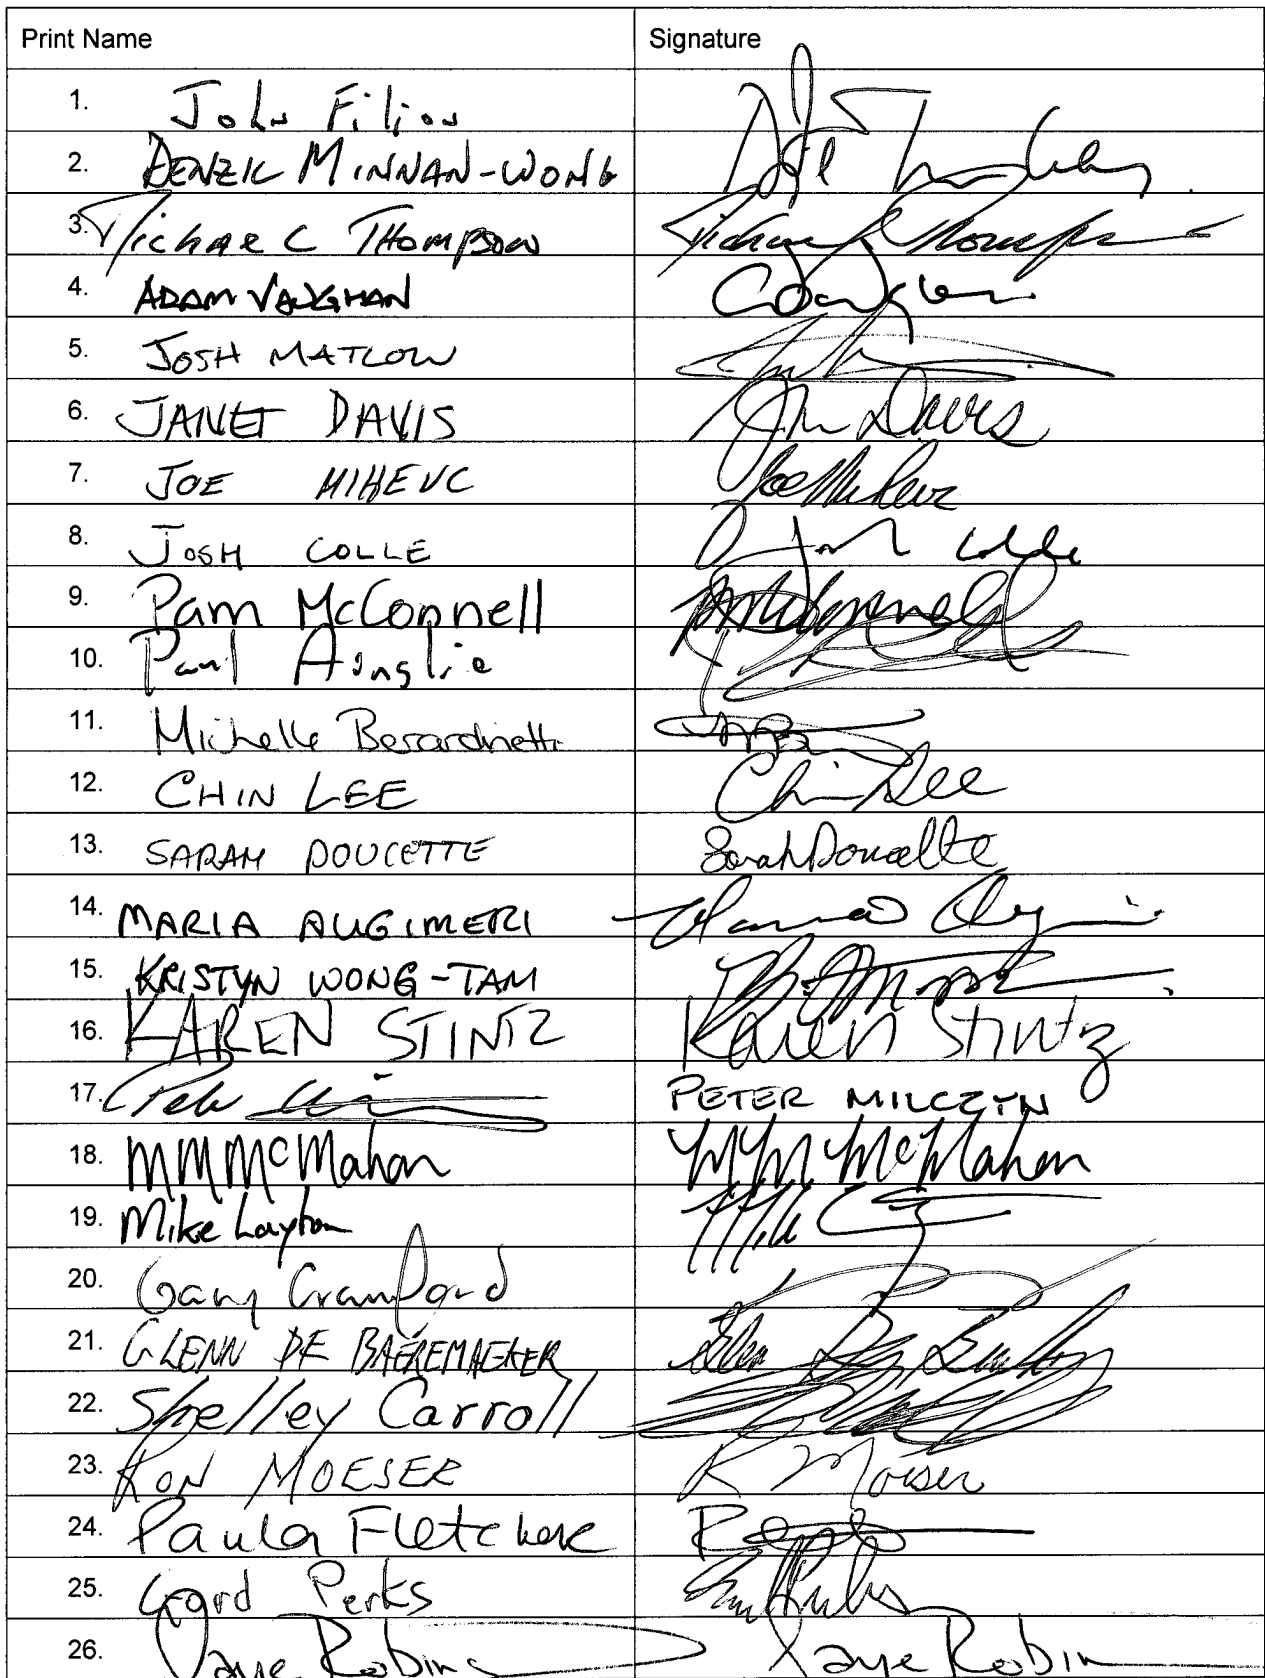 Print Name Signature
1. John Filion
2. DENZIL MINNAN-WONG
3. Michael Thompson Michael Thompson
4. ADAM VAUGHAN
5. JOSH MATLOW
6. JANET DAVIS J Davis
7. JOE MIHEVC Joe Mihevc
8. JOSH COLLE Josh Colle
9. Pam McConnell PMcConnell
10. Paul Ainslie
11. Michelle Berardinetti
12. CHIN LEE Chin Lee
13. SARAH DOUCETTE Sarah Doucette
14. MARIA AUGIMERI Maria Augimeri
15. KRISTYN WONG-TAM
16. KAREN STINTZ Karen Stintz
17. Peter PETER MILCZYN
18. MMMcMahon MMMcMahon
19. Mike Layton Mike
20. Gary Crawford
21. GLENN DE BAEREMAEKER Glenn De
22. Shelley Carroll
23. RON MOESER R Moeser
24. Paula Fletcher
25. Gord Perks
26. Jaye Robinson Jaye Robin